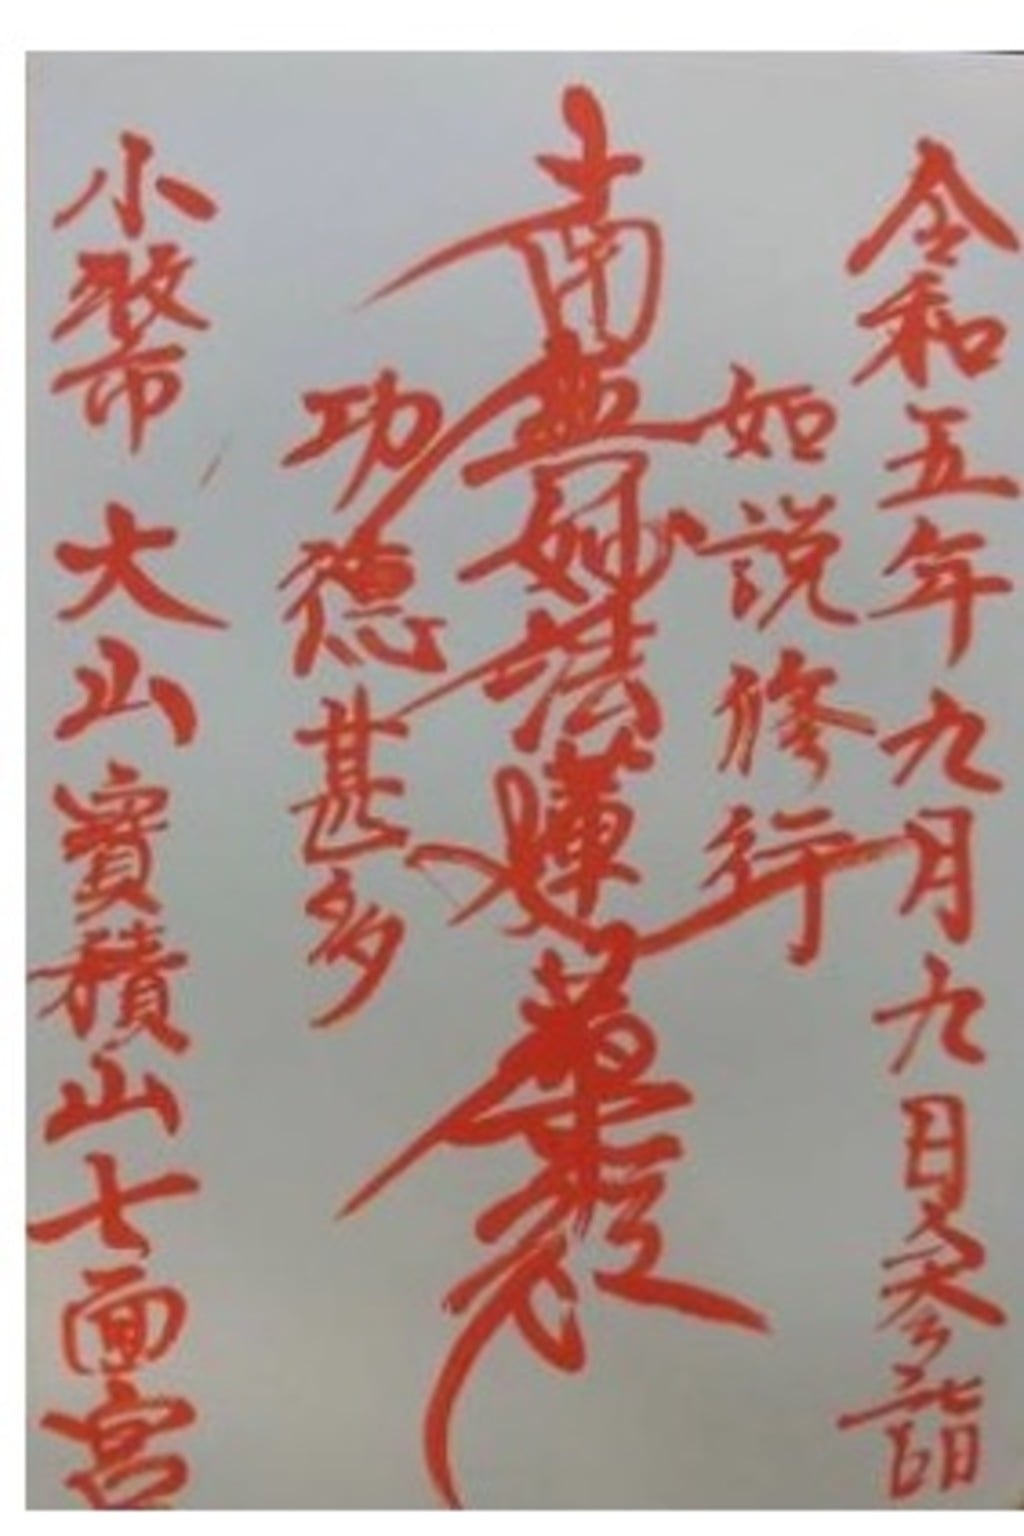 令和五年九月九日参詣
如説修行
南無妙法蓮華経
功徳甚多
小幣 大山寶積山七面宮